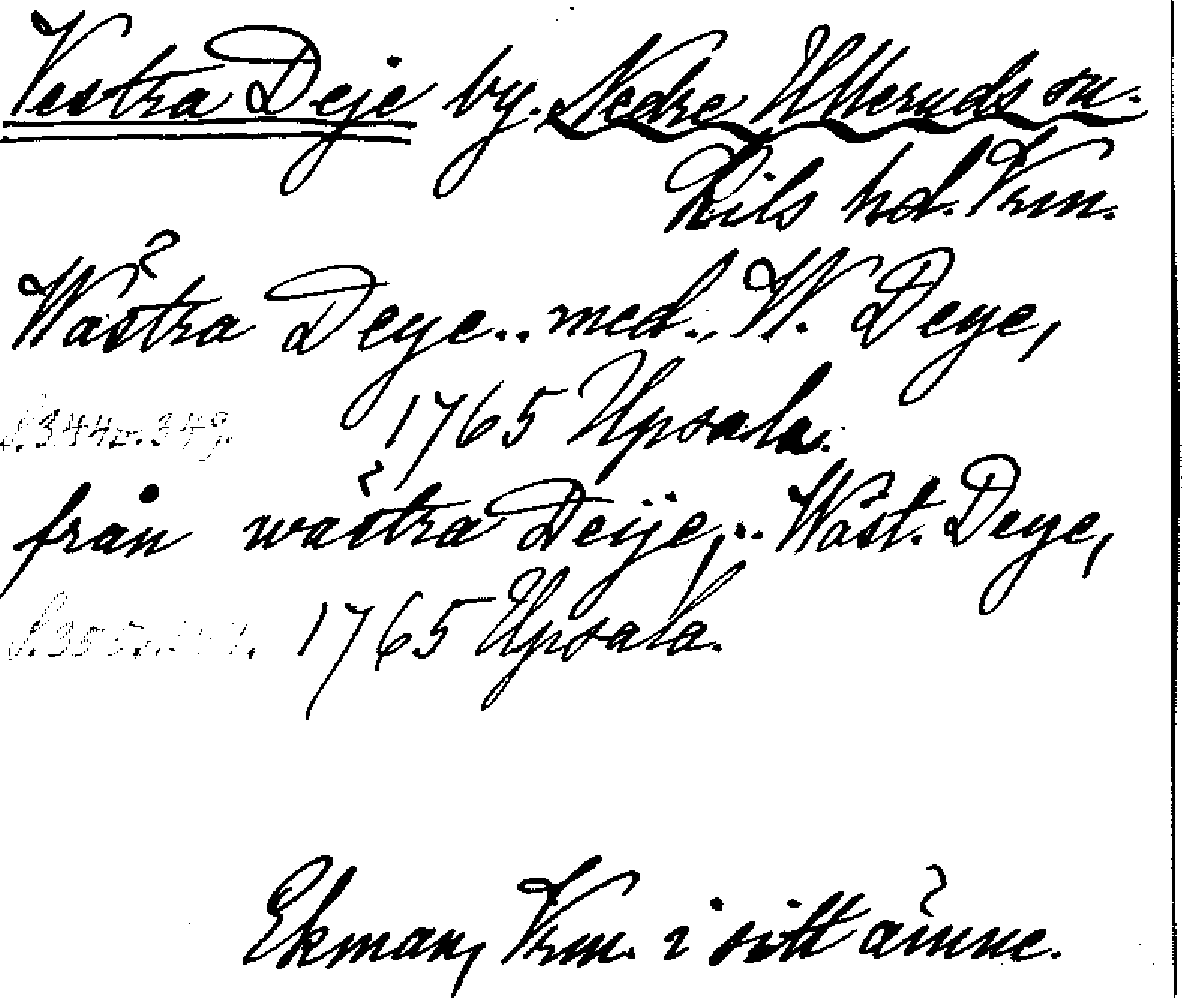 Vestra Deje by. Nedre Ulleruds sn.
Kils hd. Vrm.
Wästra Deye.. med.. W. Deye,
S. 344 o. 349. 1765 Upsala.
från wästra Deije,.. Wäst. Deye,
1765 Upsala.
Ekman, Vrm. i sitt ämne.